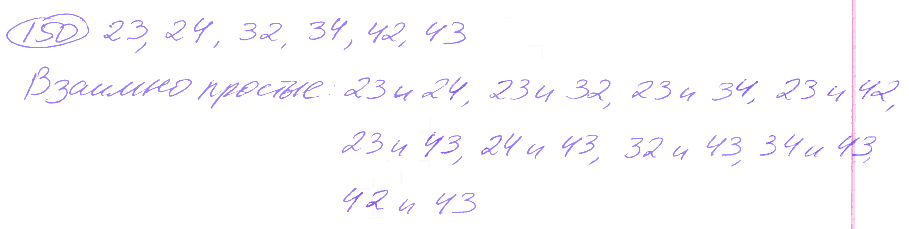 150 23, 24, 32, 34, 42, 43
Взаимно простые: 23 и 24, 23 и 32, 23 и 34, 23 и 42,
23 и 43, 24 и 43, 32 и 43, 34 и 43,
42 и 43